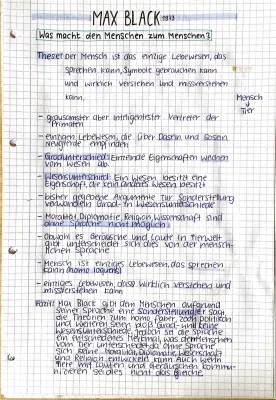 MAX BLACK 1973
Was macht den Menschen zum Menschen?
These: Der Mensch ist das einzige Lebewesen, das
sprechen kann, Symbole gebrauchen kann
und wirklich verstehen und missverstehen
kann.
Mensch
Tier
- grausamster aber intelligentester Vertreter der
Primaten
- einzigen Lebewesen, die über Dasein und Sosein
Neugierde empfinden
- Gradunterschied: Eintreffende Eigenschaften weichen
vom Wesen ab
- Wesensunterschied: Ein Wesen besitzt eine
Eigenschaft, die kein anderes Wesen besitzt
- bisher gegebene Argumente zur Sonderstellung
verwandeln Grad- in Wesensunterschiede
- Moralität, Diplomatie, Religion, Wissenschaft sind
ohne Sprache nicht möglich
- Obwohl es Geräusche und Laute in Tierwelt
gibt unterscheidet sich dies von der mensch-
lichen Sprache
- Mensch ist einziges Lebewesen, das sprechen
kann (homo loquens)
- einziges Lebewesen, dass wirklich verstehen und
missverstehen kann
Fazit: Max Black gibt dem Menschen aufgrund
seiner Sprache eine Sonderstellung. Er sagt
die Theorien zum homo faber, zoon politikon
und weiteren seien bloß Grad- und keine
Wesensunterschiede. Jedoch sei die Sprache
ein entscheidendes Merkmal, was den Menschen
vom Tier unterscheidet, da ohne Sprache
sich keine Moralität, Diplomatie, Wissenschaft
und Religion entwickeln kann. Auch wenn
Tiere mit Lauten und Geräuschen kommu-
nizieren sei dies nicht das gleiche.